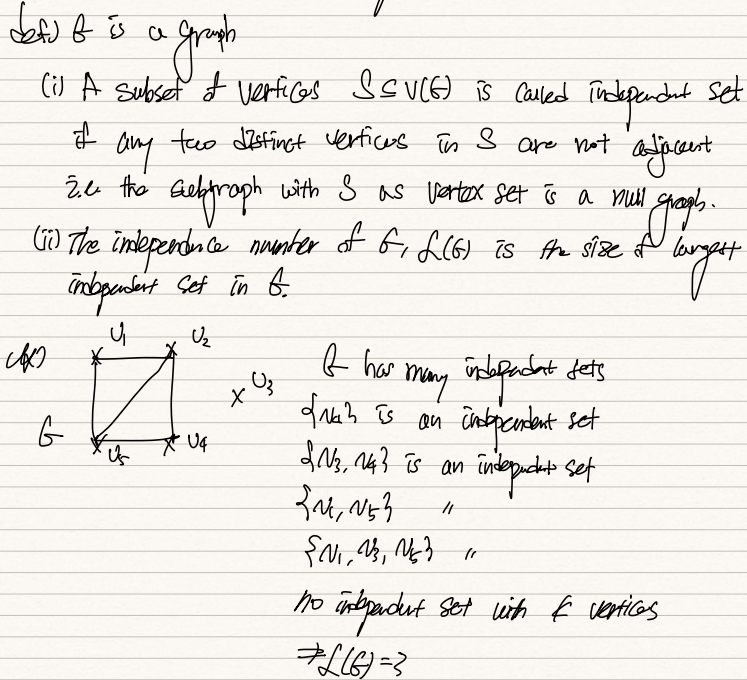 def) G is a graph
(i) A subset of vertices S⊆V(G) is called independent set
if any two distinct vertices in S are not adjacent
i.e the subgraph with S as vertex set is a null graph.
(ii) The independence number of G, α(G) is the size of largest
independent set in G.
ex)
v1 v2
v3
G
v5 v4
G has many independent sets
{v4} is an independent set
{v3, v4} is an independent set
{v1, v5} "
{v1, v3, v5} "
no independent set with vertices
⇒ α(G)=3